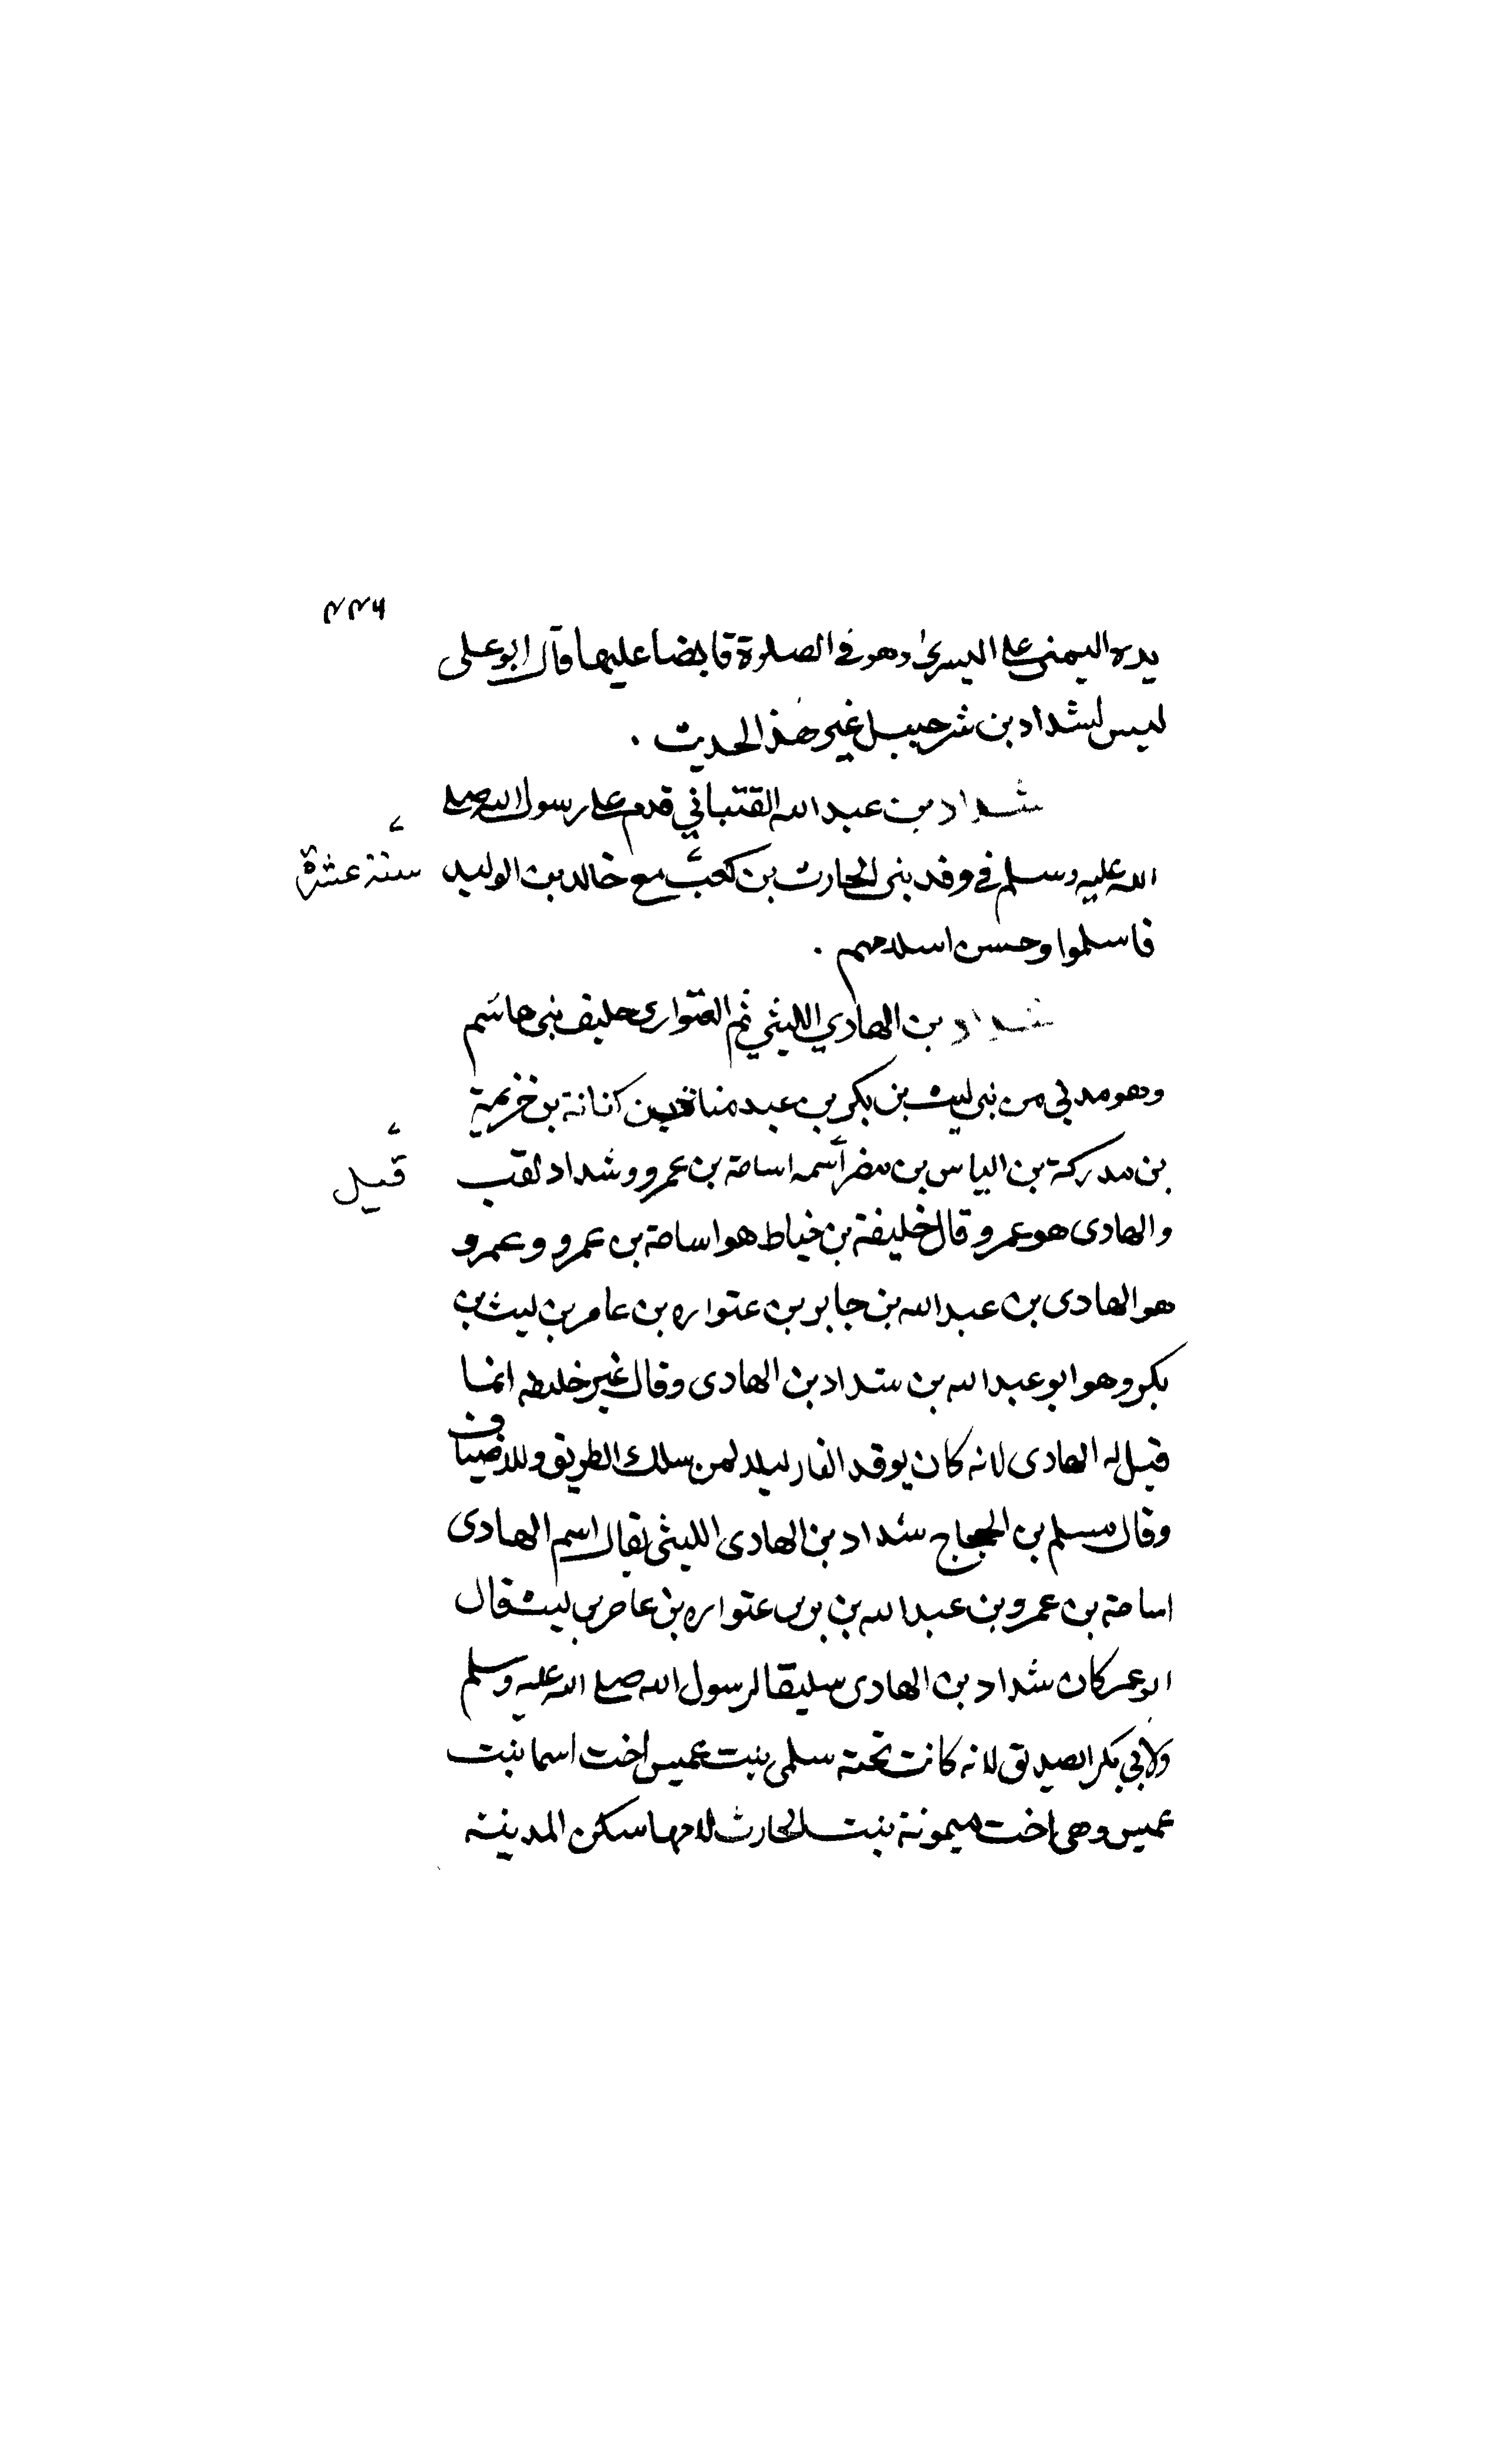 ٤٤٦
يده اليمنى على اليسرى وهو في الصلوة قابضا عليها قال ابو على
ليس لشداد بن شرحبيل غير هذا الحديث .
شداد بن عبد الله القتباني قدم على رسول الله صلى
الله عليه وسلم في وفد بنى الحارث بن كعب مع خالد بن الوليد سنة عشرة
فاسلموا وحسن اسلامهم .
شداد بن الهادي الليثي ثم العتوارى حليف بنى هاشم
وهو مدني من بنى ليث بن بكر بن عبد مناة بن كنانة بن خزيمة
بن مدركة بن الياس بن مضر اسمه اسامة بن عمرو وشداد لقب قيل
والهادى هو عمرو قال خليفة بن خياط هو اسامة بن عمرو وعمرو
هو الهادى بن عبد الله بن جابر بن عتواره بن عامر بن ليث بن
بكر وهو ابو عبد الله بن شداد بن الهادى وقال غير خليفه انما
قيل له الهادى لانه كان يوقد النار ليلا لمن سلك الطريق وللاضياف
وقال مسلم بن الحجاج شداد بن الهادى الليثى يقال اسم الهادى
اسامة بن عمرو بن عبد الله بن عتواره بن عامر بن ليث قال
ابو عمر كان شداد بن الهادى سليفا لرسول الله صلى الله عليه وسلم
ولأبي بكر الصديق لانه كانت تحته سلمى بنت عميس اخت اسما بنت
عميس وهى اخت ميمونة بنت الحارث لامها سكن المدينة